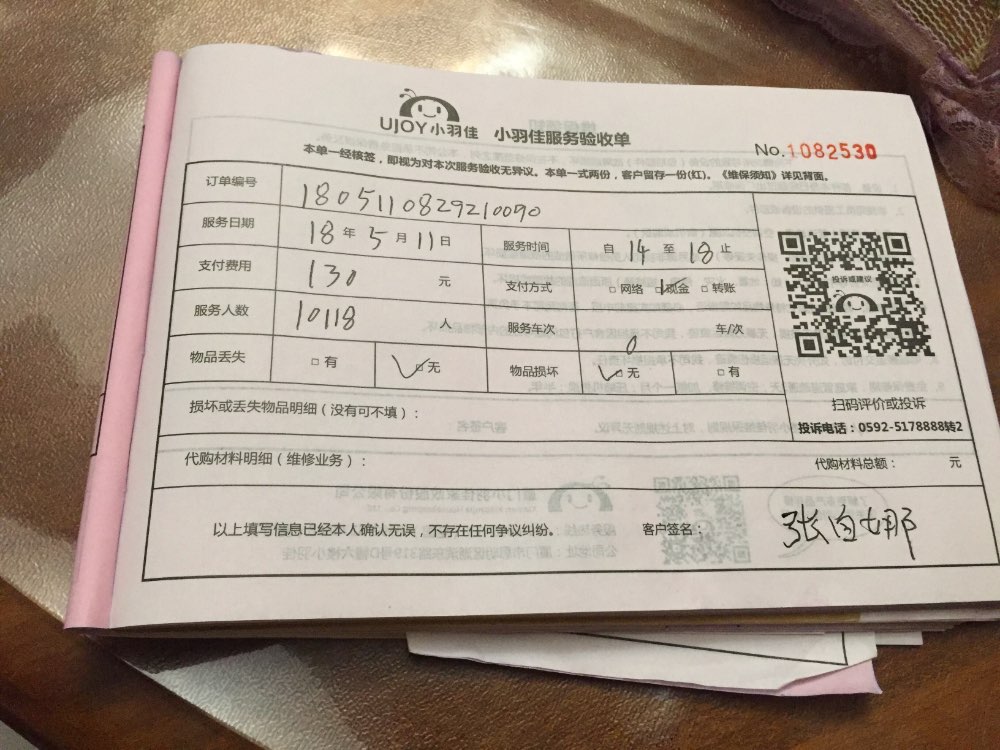 UJOY小羽佳 小羽佳服务验收单
No.1082530
本单一经核签，即视为对本次服务验收无异议。本单一式两份，客户留存一份(红)。《维保须知》详见背面。
订单编号 1805110829210090
服务日期 18年5月11日 服务时间 自14至18止
支付费用 130元 支付方式 □网络 □现金 □转账
服务人数 10118人 服务车次 0 车/次
物品丢失 □有 □无 物品损坏 □无 □有
投诉或建议
扫码评价或投诉
投诉电话：0592-5178888转2
损坏或丢失物品明细（没有可不填）：
代购材料明细（维修业务）： 代购材料总额： 元
以上填写信息已经本人确认无误，不存在任何争议纠纷。 客户签名：